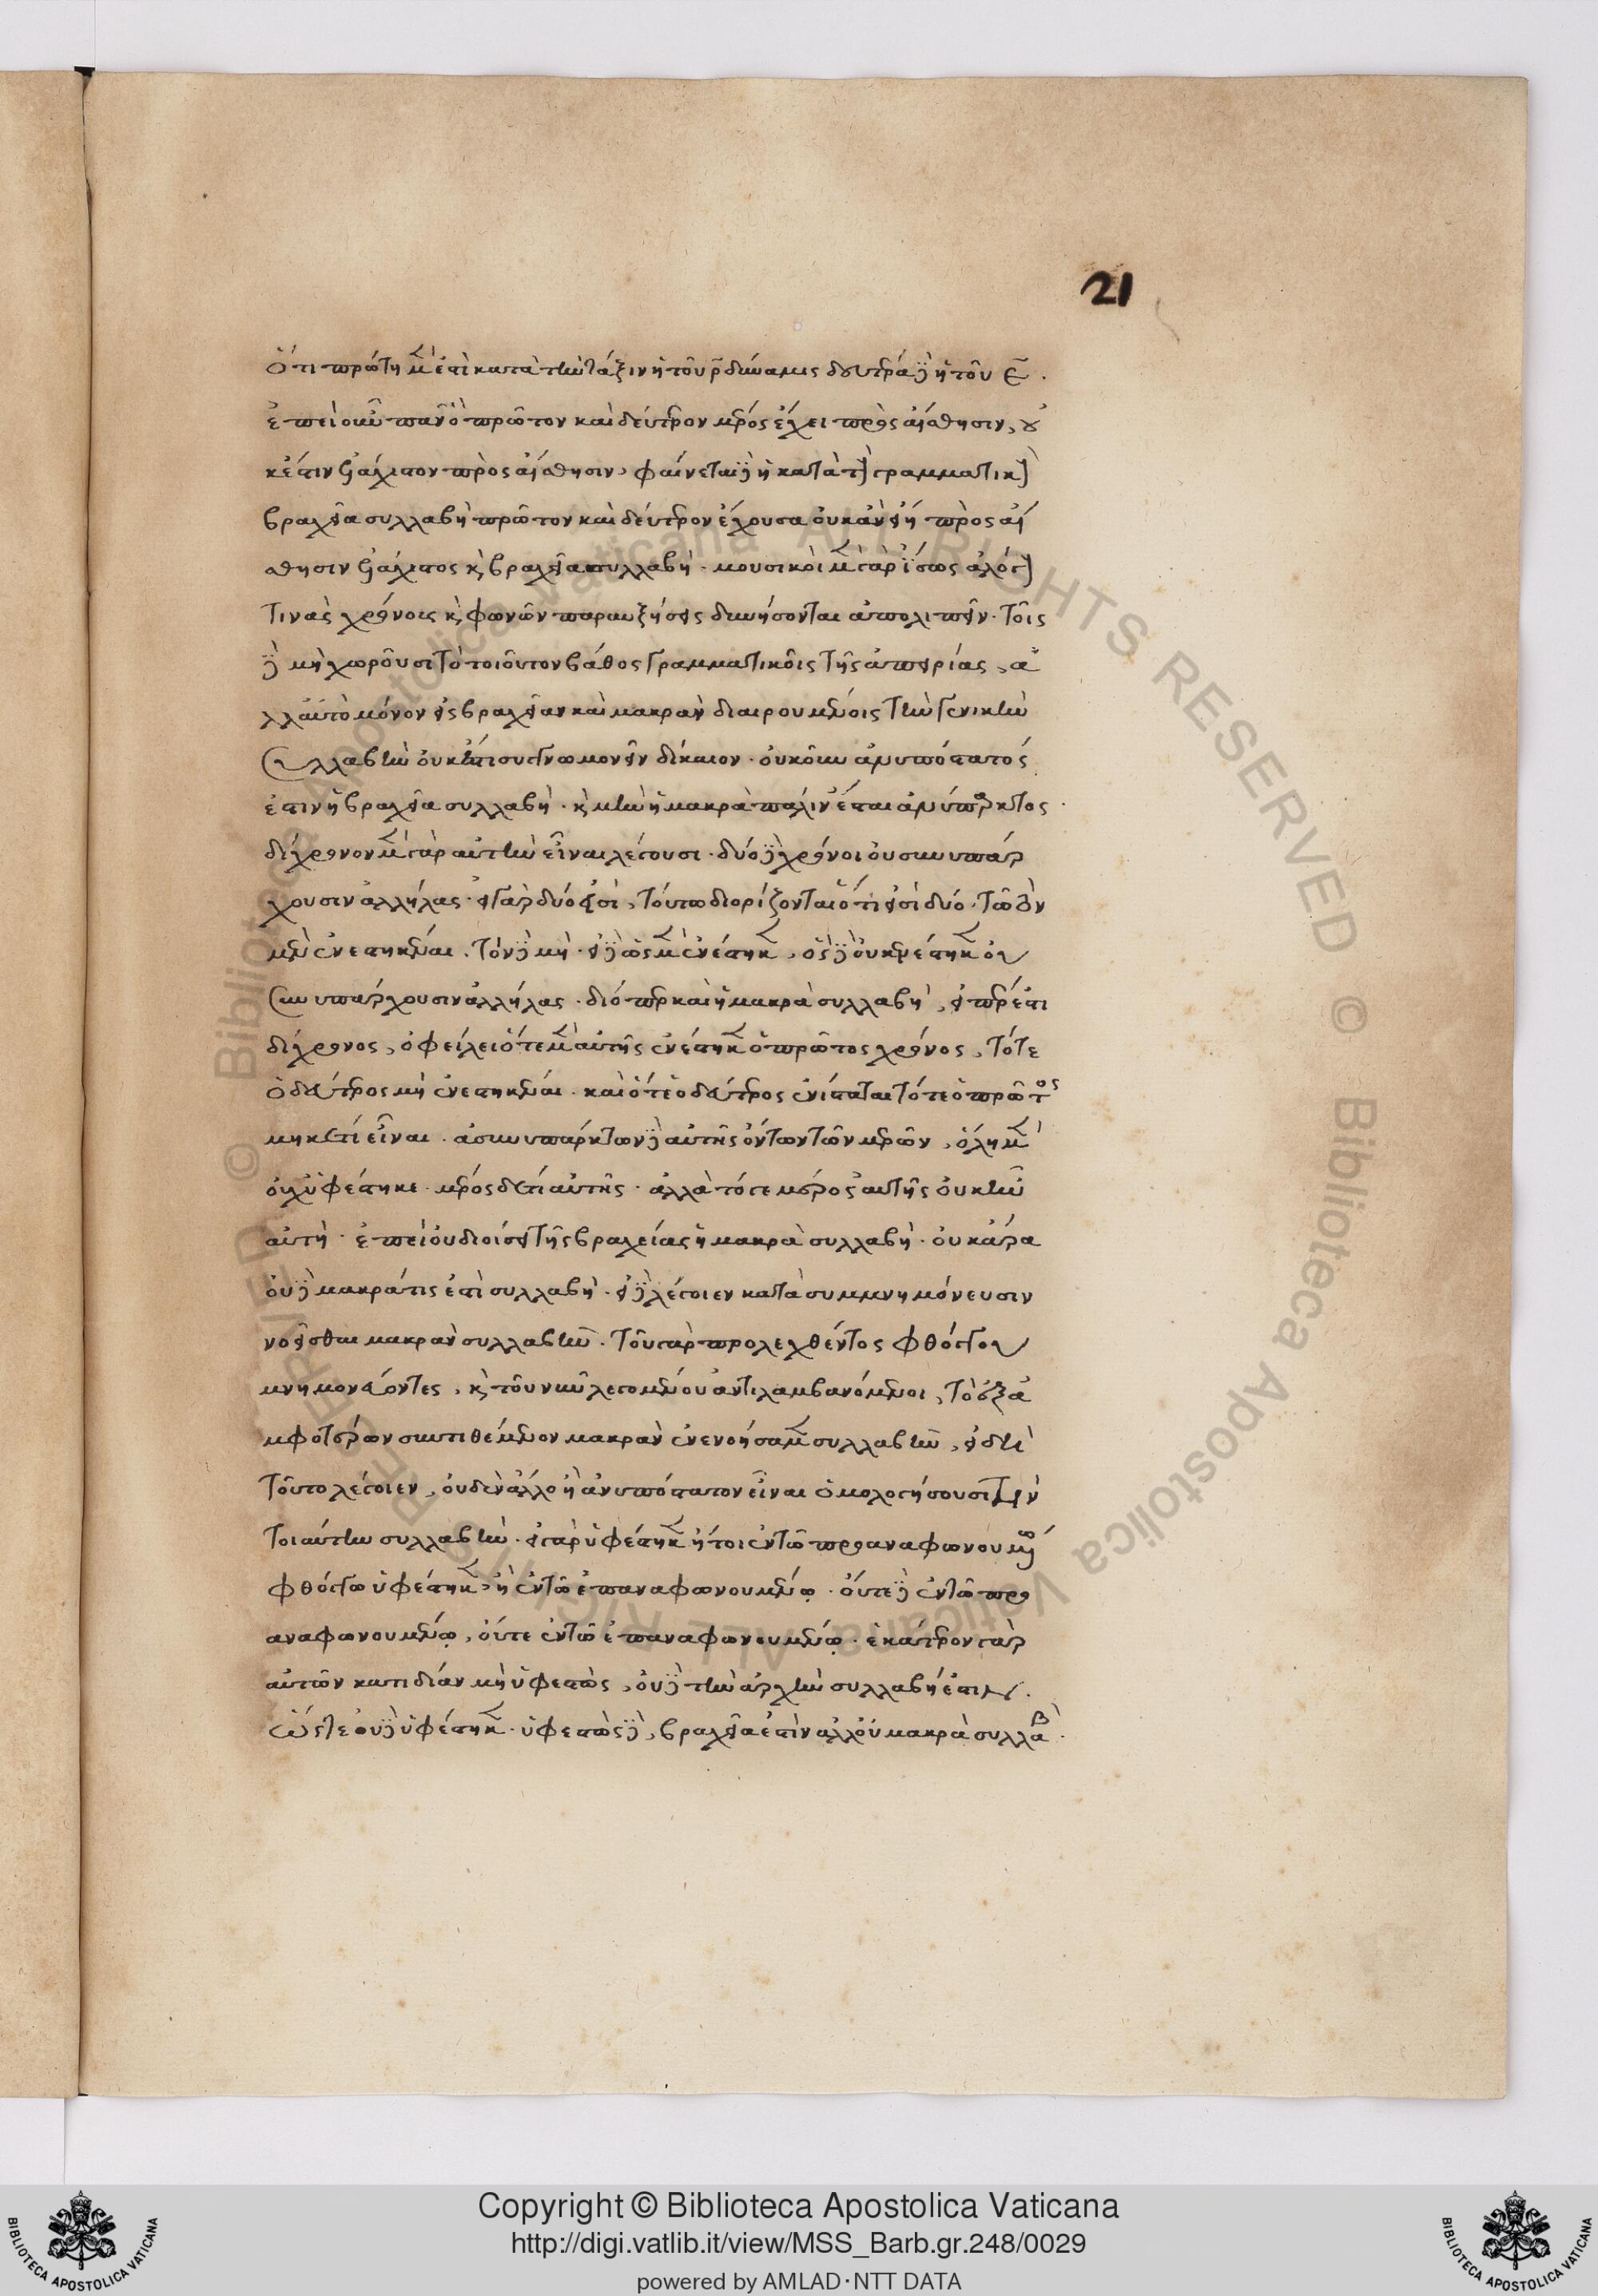 21
ὅτι πρώτη μέν ἐστι κατὰ τὴν τάξιν ἡ τοῦ ρ̄ δύναμις δευτέρα δὲ ἡ τοῦ ε̄.
ἐπεὶ οὖν πᾶν ὃ πρῶτον καὶ δεύτερον μέρος ἔχει πρὸς αἴσθησιν, οὐ
κ ἔστιν ἐλάχιστον πρὸς αἴσθησιν, φαίνεται δὲ ἡ κατὰ τὴν γραμματικὴν
βραχεῖα συλλαβὴ πρῶτον καὶ δεύτερον ἔχουσα οὐκ ἂν εἴη πρὸς αἴ
σθησιν ἐλάχιστος κ βραχεῖα συλλαβή. μουσικοὶ μὲν γὰρ ἴσως ἀλόγους
τινὰς χρόνους κ φωνῶν παραυξήσεις δυνήσονται ἀπολιπεῖν. τοῖς
δὲ μὴ χωροῦσι τὸ τοιοῦτον βάθος γραμματικοῖς τῆς ἀπειρίας, ἀ
λλ αὐτὸ μόνον εἰς βραχεῖαν καὶ μακρὰν διαιρουμένοις τὴν γενικὴν
συλλαβὴν οὐκ ἔστι συγγνωμονεῖν δίκαιον. οὐκοῦν ἀνυπόστατός
ἐστιν ἡ βραχεῖα συλλαβή. κ μὴν ἡ μακρὰ πάλιν ἔσται ἀνύπαρκτος.
δίχρονον μὲν γὰρ αὐτὴν εἶναι λέγουσι. δύο δὲ χρόνοι οὐ συνυπάρ
χουσιν ἀλλήλοις. εἰ γὰρ δύο εἰσὶ, τούτῳ διορίζονται ὅτι εἰσὶ δύο. τῷ τὸν
μὲν ἐνεστηκέναι. τὸν δὲ μή. εἰ δὲ ὃς μὲν ἐνέστηκεν, ὃς δὲ οὐκ ἐνέστηκεν οὐ
συνυπάρχουσιν ἀλλήλοις. διόπερ καὶ ἡ μακρὰ συλλαβὴ, εἴπερ ἐστὶ
δίχρονος, ὀφείλει ὅτε μὲν αὐτῆς ἐνέστηκεν ὁ πρῶτος χρόνος, τότε
ὁ δεύτερος μὴ ἐνεστηκέναι. καὶ ὅτε ὁ δεύτερος ἐνίσταται τότε ὁ πρῶτος
μηκέτι εἶναι. ἀσυνυπάρκτων δὲ αὐτῆς ὄντων τῶν μερῶν, ὅλη μὲν
οὐχ ὑφέστηκε. μέρος δέ τι αὐτῆς. ἀλλὰ τό γε μέρος αὐτῆς οὐκ ἦν
αὐτή. ἐπεὶ οὐ διοίσει τῆς βραχείας ἡ μακρὰ συλλαβή. οὐκ ἄρα
οὐδὲ μακρά τις ἐστὶ συλλαβή. εἰ δὲ λέγοιεν κατὰ συμμνημόνευσιν
νοεῖσθαι μακρὰν συλλαβὴν. τοῦ γὰρ προλεχθέντος φθόγγου
μνημονεύοντες, κ τοῦ νῦν λεγομένου ἀντιλαμβανόμενοι, τὸ ἐξ ἀ
μφοτέρων συντιθέμενον μακρὰν ἐνενοήσαμεν συλλαβὴν, εἰ δὴ
τοῦτο λέγοιεν, οὐδὲν ἄλλο ἢ ἀνυπόστατον εἶναι ὁμολογήσουσι τὴν
τοιαύτην συλλαβὴν. εἰ γὰρ ὑφέστηκεν ἤτοι ἐν τῷ προαναφωνουμένῳ
φθόγγῳ ὑφέστηκεν, ἢ ἐν τῷ ἐπαναφωνουμένῳ. οὔτε δὲ ἐν τῷ προ
αναφωνουμένῳ, οὔτε ἐν τῷ ἐπαναφωνουμένῳ. ἑκάτερον γὰρ
αὐτῶν κατ ιδίαν μὴ ὑφεστὼς, οὐδὲ τὴν ἀρχὴν συλλαβή ἐστιν.
ὥστε οὐδὲ ὑφέστηκεν. ὑφεστὼς δὲ, βραχεῖα ἐστὶν ἀλλ οὐ μακρὰ συλλαβὴ.
Copyright © Biblioteca Apostolica Vaticana
http://digi.vatlib.it/view/MSS_Barb.gr.248/0029
powered by AMLAD·NTT DATA